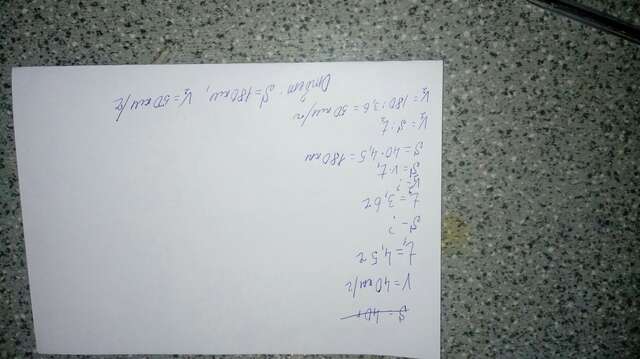 V = 40 км/г
t₁ = 4,5 г
S - ?
t₂ = 3,6 г
V₂ = ?
S = V · t₁
S = 40 · 4,5 = 180 км
V₂ = S : t₂
V₂ = 180 : 3,6 = 50 км/г
Ответ: S = 180 км, V₂ = 50 км/г